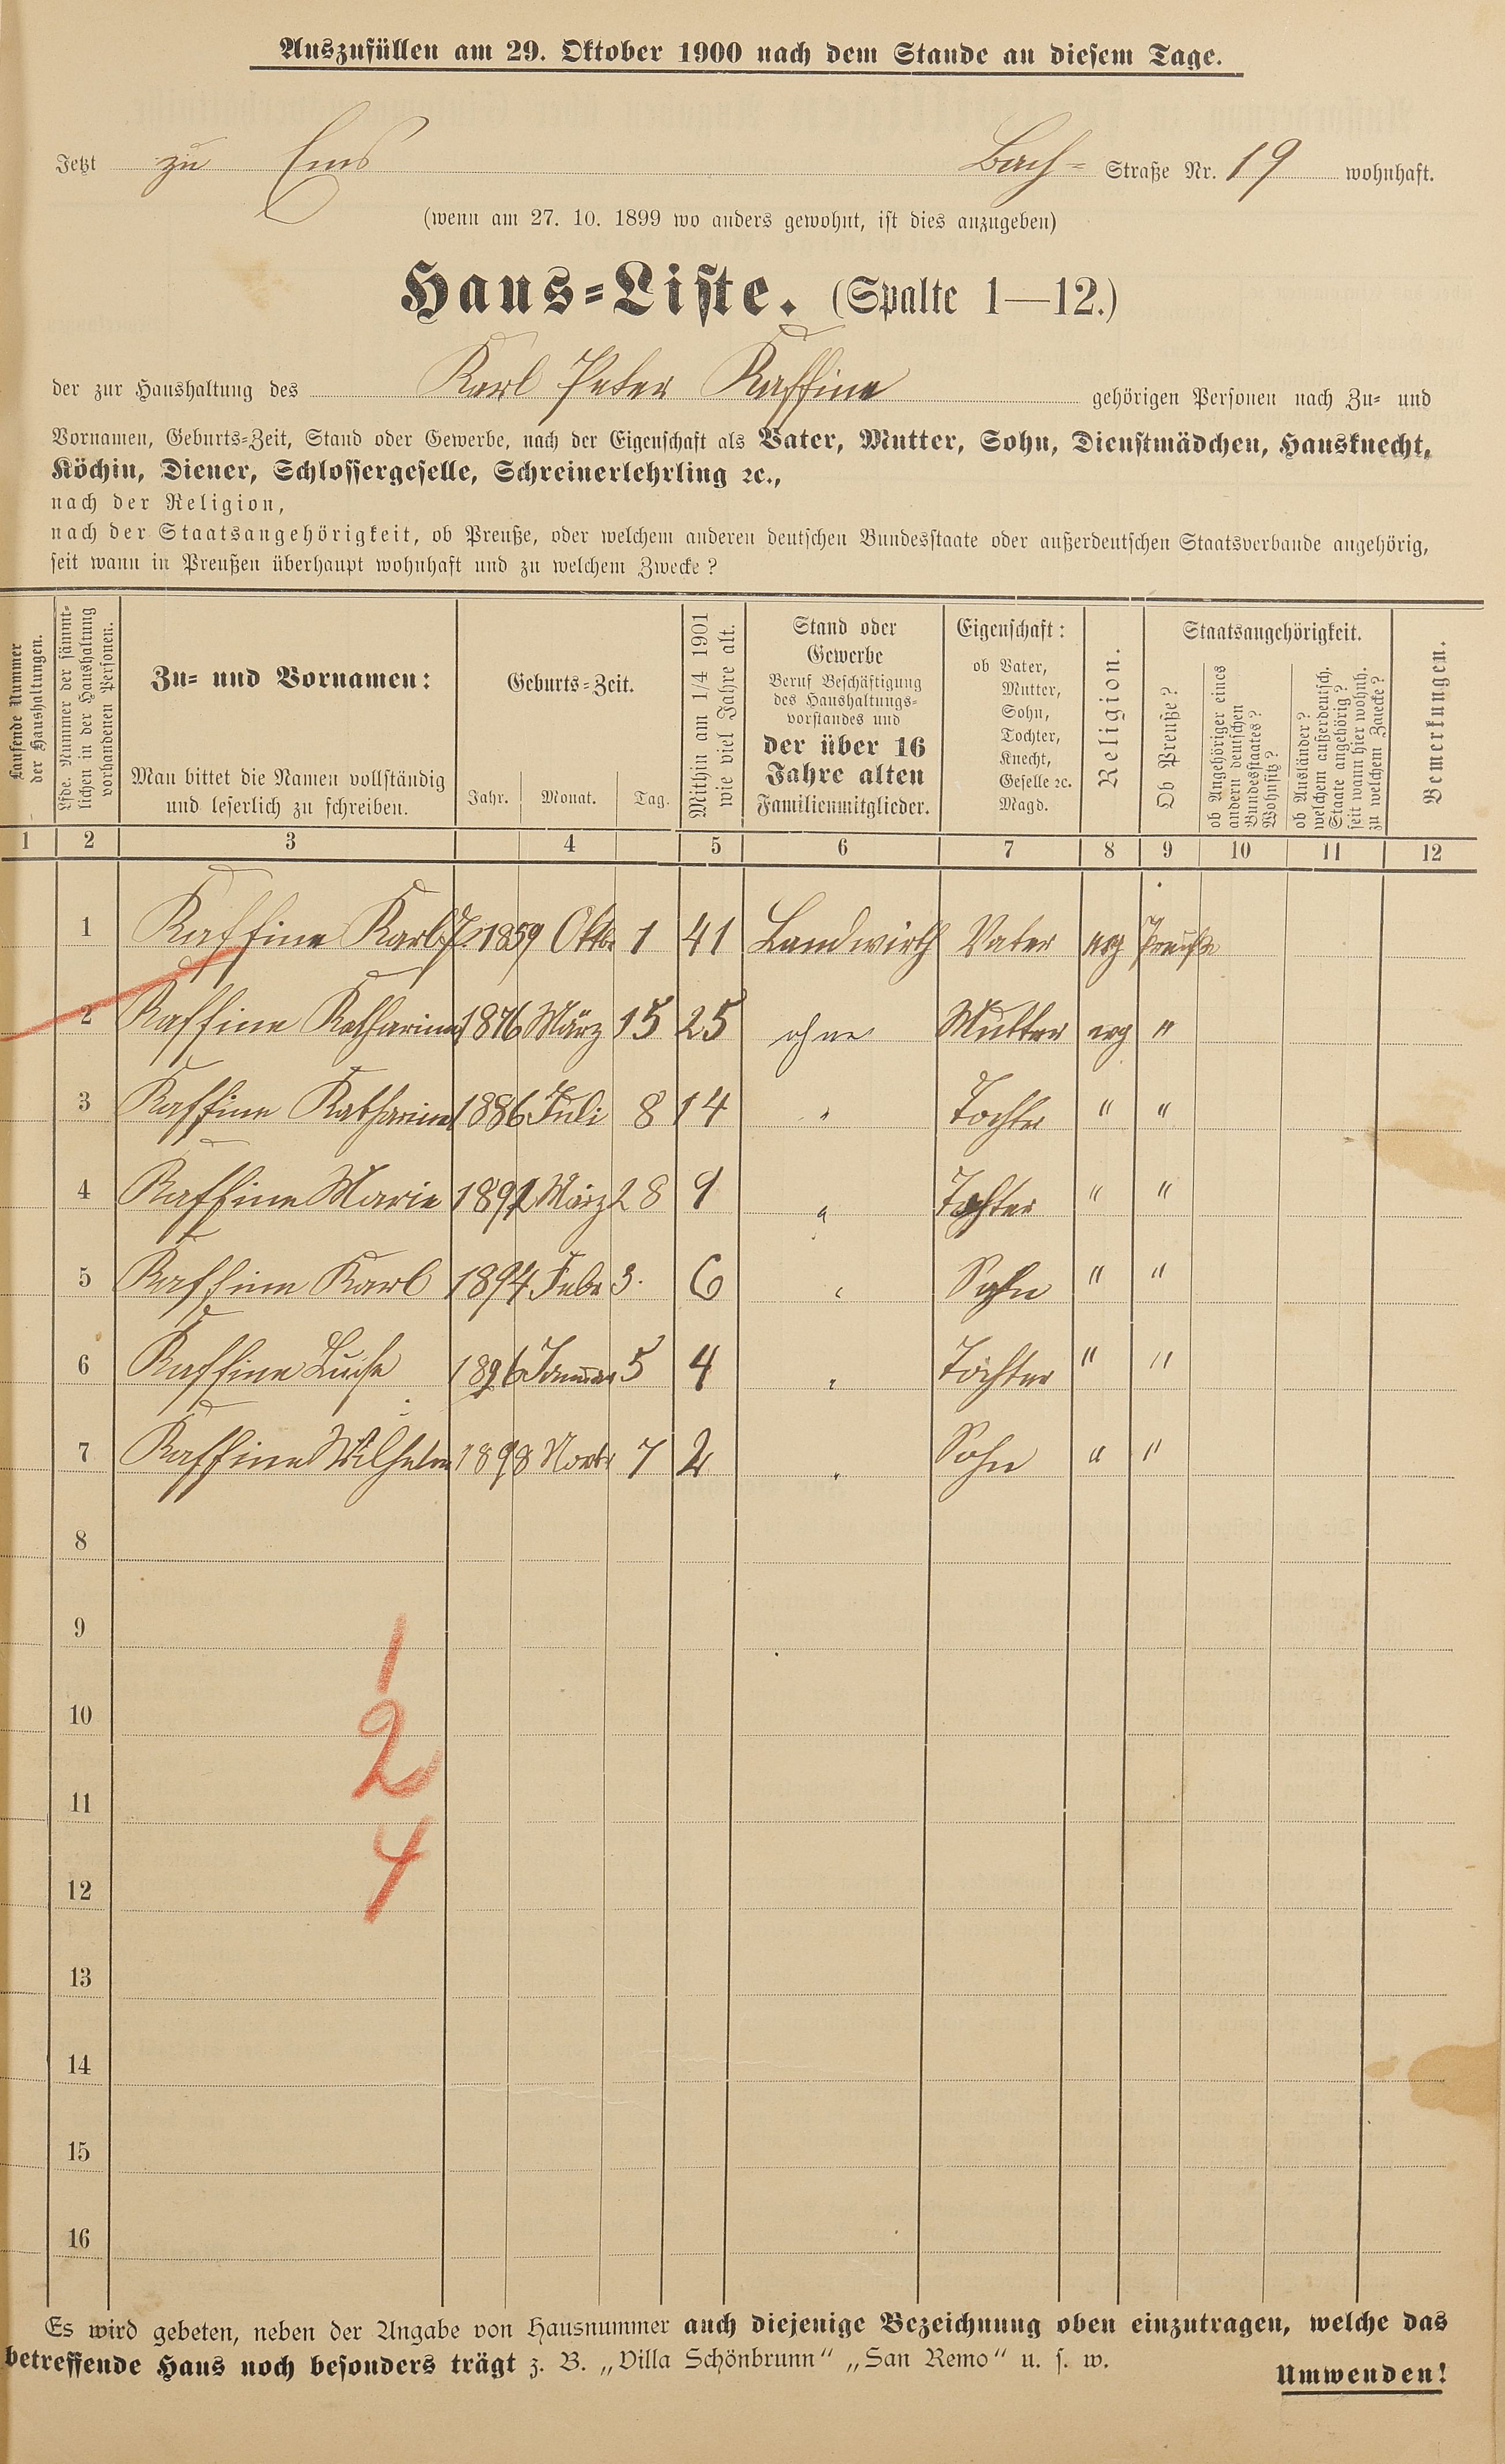 Auszufüllen am 29. Oktober 1900 nach dem Stande an diesem Tage.
Jetzt zu Ems Bach- Straße Nr. 19 wohnhaft.
(wenn am 27. 10. 1899 wo anders gewohnt, ist dies anzugeben)
Haus-Liste. (Spalte 1—12.)
der zur Haushaltung des Karl Peter Kaffine gehörigen Personen nach Zu- und
Vornamen, Geburts-Zeit, Stand oder Gewerbe, nach der Eigenschaft als Vater, Mutter, Sohn, Dienstmädchen, Hausknecht,
Köchin, Diener, Schlossergeselle, Schreinerlehrling ꝛc.,
nach der Religion,
nach der Staatsangehörigkeit, ob Preuße, oder welchem anderen deutschen Bundesstaate oder außerdeutschen Staatsverbande angehörig,
seit wann in Preußen überhaupt wohnhaft und zu welchem Zwecke?
Laufende Nummer
der Haushaltungen.
Lfde. Nummer der sämmt-
lichen in der Haushaltung
vorhandenen Personen.
Zu- und Vornamen:
Man bittet die Namen vollständig
und leserlich zu schreiben.
Geburts-Zeit.
Jahr. Monat. Tag.
Mithin am 1/4 1901
wie viel Jahre alt.
Stand oder
Gewerbe
Beruf Beschäftigung
des Haushaltungs-
vorstandes und
der über 16
Jahre alten
Familienmitglieder.
Eigenschaft:
ob Vater,
Mutter,
Sohn,
Tochter,
Knecht,
Geselle ꝛc.
Magd.
Religion.
Staatsangehörigkeit.
Ob Preuße?
ob Angehöriger eines
andern deutschen
Bundesstaates?
Wohnsitz?
ob Ausländer?
welchem außerdeutsch.
Staate angehörig?
seit wann hier wohnh.
zu welchem Zwecke?
Bemerkungen.
1 2 3 4 5 6 7 8 9 10 11 12
1 Kaffine Karl P. 1859 Oktb. 1 41 Landwirth Vater evg Preuße
2 Kaffine Katharina 1876 März 15 25 ohne Mutter evg "
3 Kaffine Katharina 1886 Juli 8 14 " Tochter " "
4 Kaffine Marie 1891 März 28 9 " Tochter " "
5 Kaffine Karl 1894 Febr 3. 6 " Sohn " "
6 Kaffine Luise 1896 Januar 5 4 " Tochter " "
7 Kaffine Wilhelm 1898 Novbr 7 2 " Sohn " "
8
9
1
10
2
11
4
12
13
14
15
16
Es wird gebeten, neben der Angabe von Hausnummer auch diejenige Bezeichnung oben einzutragen, welche das
betreffende Haus noch besonders trägt z. B. „Villa Schönbrunn“ „San Remo“ u. s. w.
Umwenden!